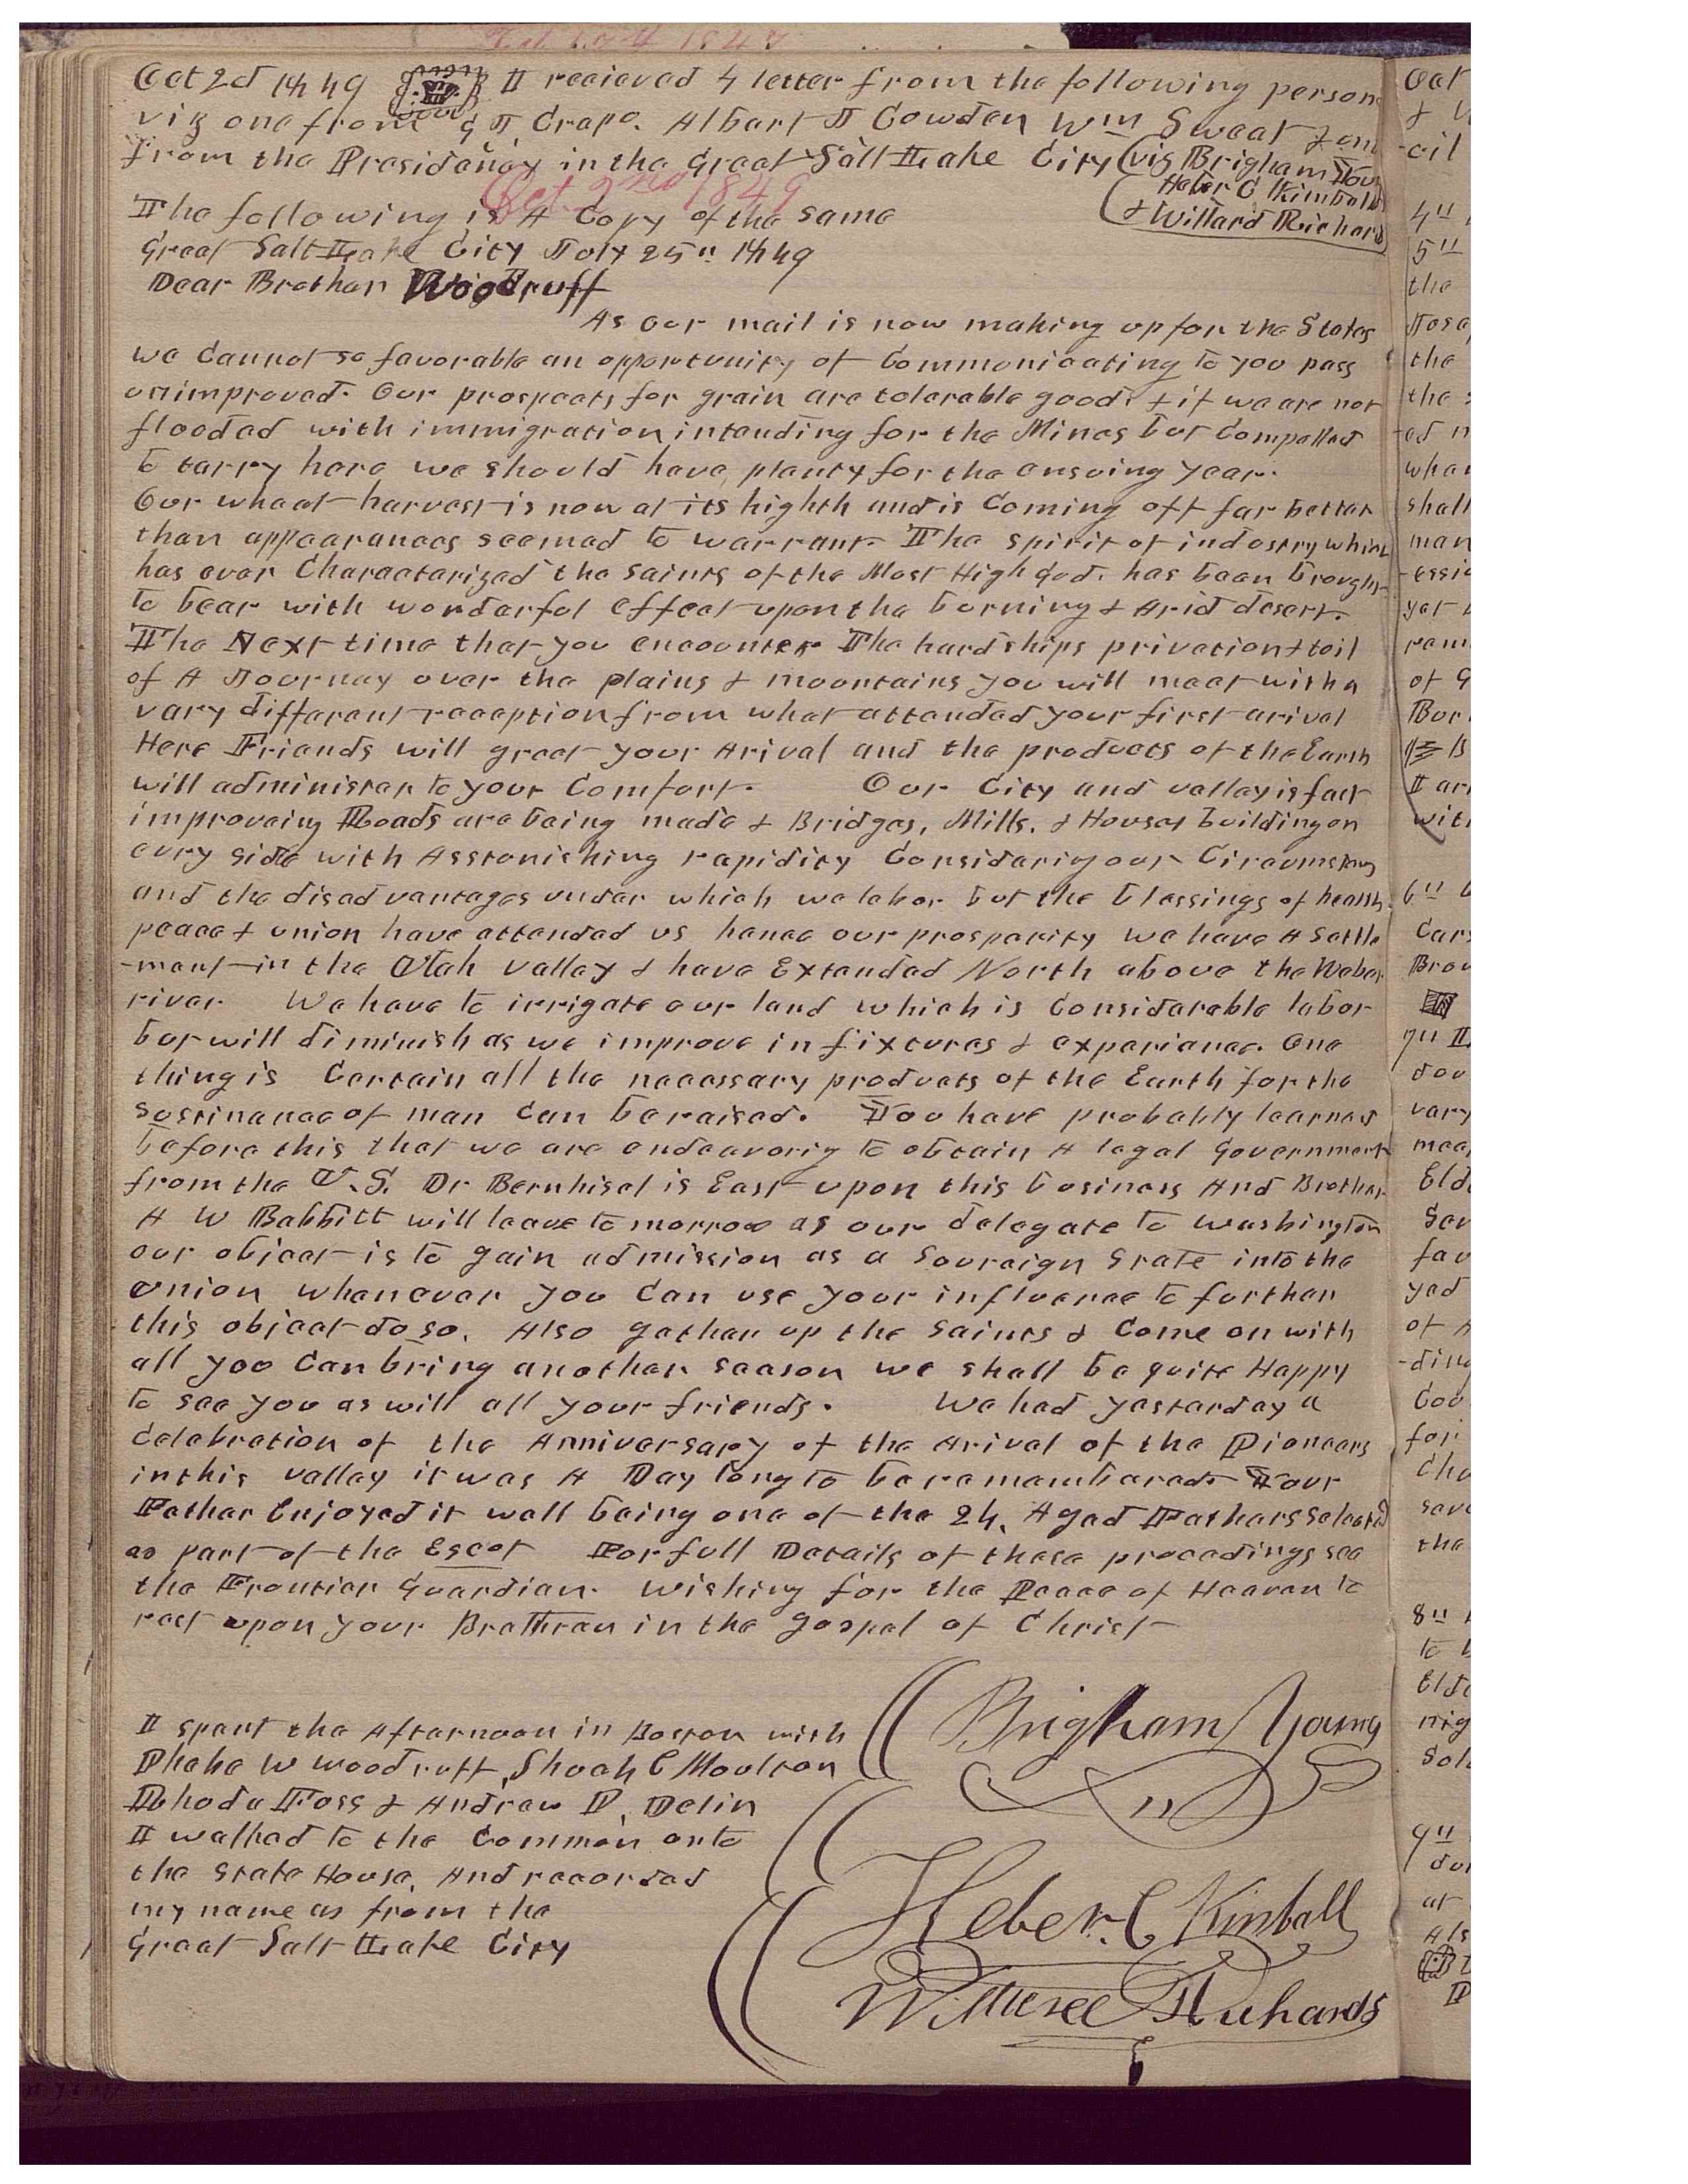 Oct 2d 1849 I recieved 4 letter from the following person
viz one from G J Crapo. Albart J Cowden Wm Sweat & one
from the Presidency in the Great Salt Lake City (viz Brigham You
Heber C Kimball
& Willard Richard
Oct. 2nd 1849
The following is A Copy of the same
Great Salt Lake City July 25" 1849
Dear Brother Woodruff
As our mail is now making up for the States
we cannot so favorable an opportunity of Communicating to you pass
unimproved. Our prospects for grain are tolerable good. & if we are not
flooded with immigration intending for the Mines but Compelled
to tarry here we should have plenty for the ensuing year.
Our wheat harvest is now at its highth and is Coming off far better
than appearances seemed to warrant. The spirit of industry which
has ever Characterized the Saints of the Most High God. has been brought
to bear with wonderful effect upon the burning & Arid desert.
The Next time that you encounter The hardships privation & toil
of A Journey over the plains & mountains you will meet with a
very different reception from what attended your first arival
Here Friends will greet your Arival and the products of the Earth
will administer to your Comfort. Our City and valley is fast
improveing Roads are being made & Bridges, Mills, & Houses building on
evry side with Asstonishing rapidity Considering our Circumstans
and the disadvantages under which we labor but the blessings of health
peace & union have attended us hence our prosperity we have A Settle
-ment in the Utah valley & have Extended North above the Weber
river We have to irrigate our land which is Considerable labor
but will diminish as we improve in fixtures & experiance. One
thing is Certain all the necessary products of the Earth for the
sustinance of man can be raised. You have probably learned
before this that we are endeavorig to obtain A legal Government
from the U.S. Dr Bernhisel is East upon this business And Brother
A W Babbitt will leave to morrow as our delegate to Washington
our object is to gain admission as a Sovreign State into the
Union whenever you Can use your influence to further
this object do so. Also gather up the Saints & Come on with
all you Can bring another season we shall be quite Happy
to see you as will all your friends. We had yesterday a
Celebration of the Anniversary of the Arival of the Pioneers
in this valley it was A Day long to be remembered. Your
Father Enjoyed it well being one of the 24, Aged Fathers Selected
as part of the Escot For full Details of these procedings see
the Frontier Guardian. Wishing for the Peace of Heaven to
rest upon your Brethren in the gospel of Christ
Brigham Young
Heber. C Kimball
Willard Richards
I spent the Afternoon in Boston with
Phebe W Woodruff, Shuah C Moulton
Rhoda Foss & Andrew P. Delin
I walked to the Common onto
the State House, And recorded
my name as from the
Great Salt Lake City